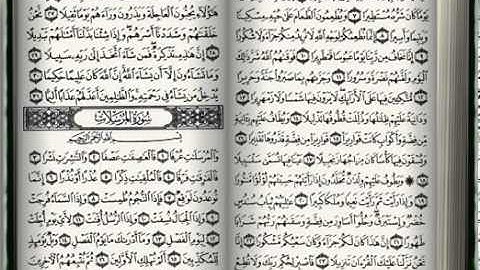 يَوْمًا كَانَ شَرُّهُ مُسْتَطِيرًا ٧ وَيُطْعِمُونَ الطَّعَامَ عَلَىٰ حُبِّهِ مِسْكِينًا
وَيَتِيمًا وَأَسِيرًا ٨ إِنَّمَا نُطْعِمُكُمْ لِوَجْهِ اللَّهِ لَا نُرِيدُ مِنكُمْ جَزَاءً وَلَا شُكُورًا
٩ إِنَّا نَخَافُ مِن رَّبِّنَا يَوْمًا عَبُوسًا قَمْطَرِيرًا ١٠ فَوَقَىٰهُمُ اللَّهُ شَرَّ ذَٰلِكَ
الْيَوْمِ وَلَقَّىٰهُمْ نَضْرَةً وَسُرُورًا ١١ وَجَزَىٰهُم بِمَا صَبَرُوا جَنَّةً وَحَرِيرًا ١٢
مُّتَّكِـِٔينَ فِيهَا عَلَى الْأَرَائِكِ لَا يَرَوْنَ فِيهَا شَمْسًا وَلَا زَمْهَرِيرًا ١٣
وَدَانِيَةً عَلَيْهِمْ ظِلَٰلُهَا وَذُلِّلَتْ قُطُوفُهَا تَذْلِيلًا ١٤ وَيُطَافُ عَلَيْهِم بِـَٔانِيَةٍ
مِّن فِضَّةٍ وَأَكْوَابٍ كَانَتْ قَوَارِيرَا ١٥ قَوَارِيرَا مِن فِضَّةٍ قَدَّرُوهَا تَقْدِيرًا ١٦
وَيُسْقَوْنَ فِيهَا كَأْسًا كَانَ مِزَاجُهَا زَنجَبِيلًا ١٧ عَيْنًا فِيهَا تُسَمَّىٰ سَلْسَبِيلًا
١٨ ۞ وَيَطُوفُ عَلَيْهِمْ وِلْدَٰنٌ مُّخَلَّدُونَ إِذَا رَأَيْتَهُمْ حَسِبْتَهُمْ لُؤْلُؤًا مَّنثُورًا
١٩ وَإِذَا رَأَيْتَ ثَمَّ رَأَيْتَ نَعِيمًا وَمُلْكًا كَبِيرًا ٢٠ عَٰلِيَهُمْ ثِيَابُ سُندُسٍ
خُضْرٌ وَإِسْتَبْرَقٌ وَحُلُّوا أَسَاوِرَ مِن فِضَّةٍ وَسَقَىٰهُمْ رَبُّهُمْ شَرَابًا طَهُورًا
٢١ إِنَّ هَٰذَا كَانَ لَكُمْ جَزَاءً وَكَانَ سَعْيُكُم مَّشْكُورًا ٢٢ إِنَّا
نَحْنُ نَزَّلْنَا عَلَيْكَ الْقُرْءَانَ تَنزِيلًا ٢٣
هَٰؤُلَاءِ يُحِبُّونَ الْعَاجِلَةَ وَيَذَرُونَ وَرَاءَهُمْ يَوْمًا ثَقِيلًا ٢٧ نَّحْنُ
خَلَقْنَٰهُمْ وَشَدَدْنَا أَسْرَهُمْ وَإِذَا شِئْنَا بَدَّلْنَا أَمْثَٰلَهُمْ تَبْدِيلًا
٢٨ إِنَّ هَٰذِهِ تَذْكِرَةٌ فَمَن شَاءَ اتَّخَذَ إِلَىٰ رَبِّهِ سَبِيلًا ٢٩
وَمَا تَشَاءُونَ إِلَّا أَن يَشَاءَ اللَّهُ إِنَّ اللَّهَ كَانَ عَلِيمًا حَكِيمًا ٣٠
يُدْخِلُ مَن يَشَاءُ فِي رَحْمَتِهِ وَالظَّٰلِمِينَ أَعَدَّ لَهُمْ عَذَابًا أَلِيمًا ٣١
سُورَةُ الْمُرْسَلَاتِ
بِسْمِ اللَّهِ الرَّحْمَٰنِ الرَّحِيمِ
وَالْمُرْسَلَٰتِ عُرْفًا ١ فَالْعَٰصِفَٰتِ عَصْفًا ٢ وَالنَّٰشِرَٰتِ نَشْرًا ٣
فَالْفَٰرِقَٰتِ فَرْقًا ٤ فَالْمُلْقِيَٰتِ ذِكْرًا ٥ عُذْرًا أَوْ نُذْرًا ٦ إِنَّمَا
تُوعَدُونَ لَوَٰقِعٌ ٧ فَإِذَا النُّجُومُ طُمِسَتْ ٨ وَإِذَا السَّمَاءُ فُرِجَتْ
٩ وَإِذَا الْجِبَالُ نُسِفَتْ ١٠ وَإِذَا الرُّسُلُ أُقِّتَتْ ١١ لِأَيِّ يَوْمٍ أُجِّلَتْ
١٢ لِيَوْمِ الْفَصْلِ ١٣ وَمَا أَدْرَىٰكَ مَا يَوْمُ الْفَصْلِ ١٤ وَيْلٌ يَوْمَئِذٍ
لِّلْمُكَذِّبِينَ ١٥ أَلَمْ نُهْلِكِ الْأَوَّلِينَ ١٦ ثُمَّ نُتْبِعُهُمُ الْـَٔاخِرِينَ